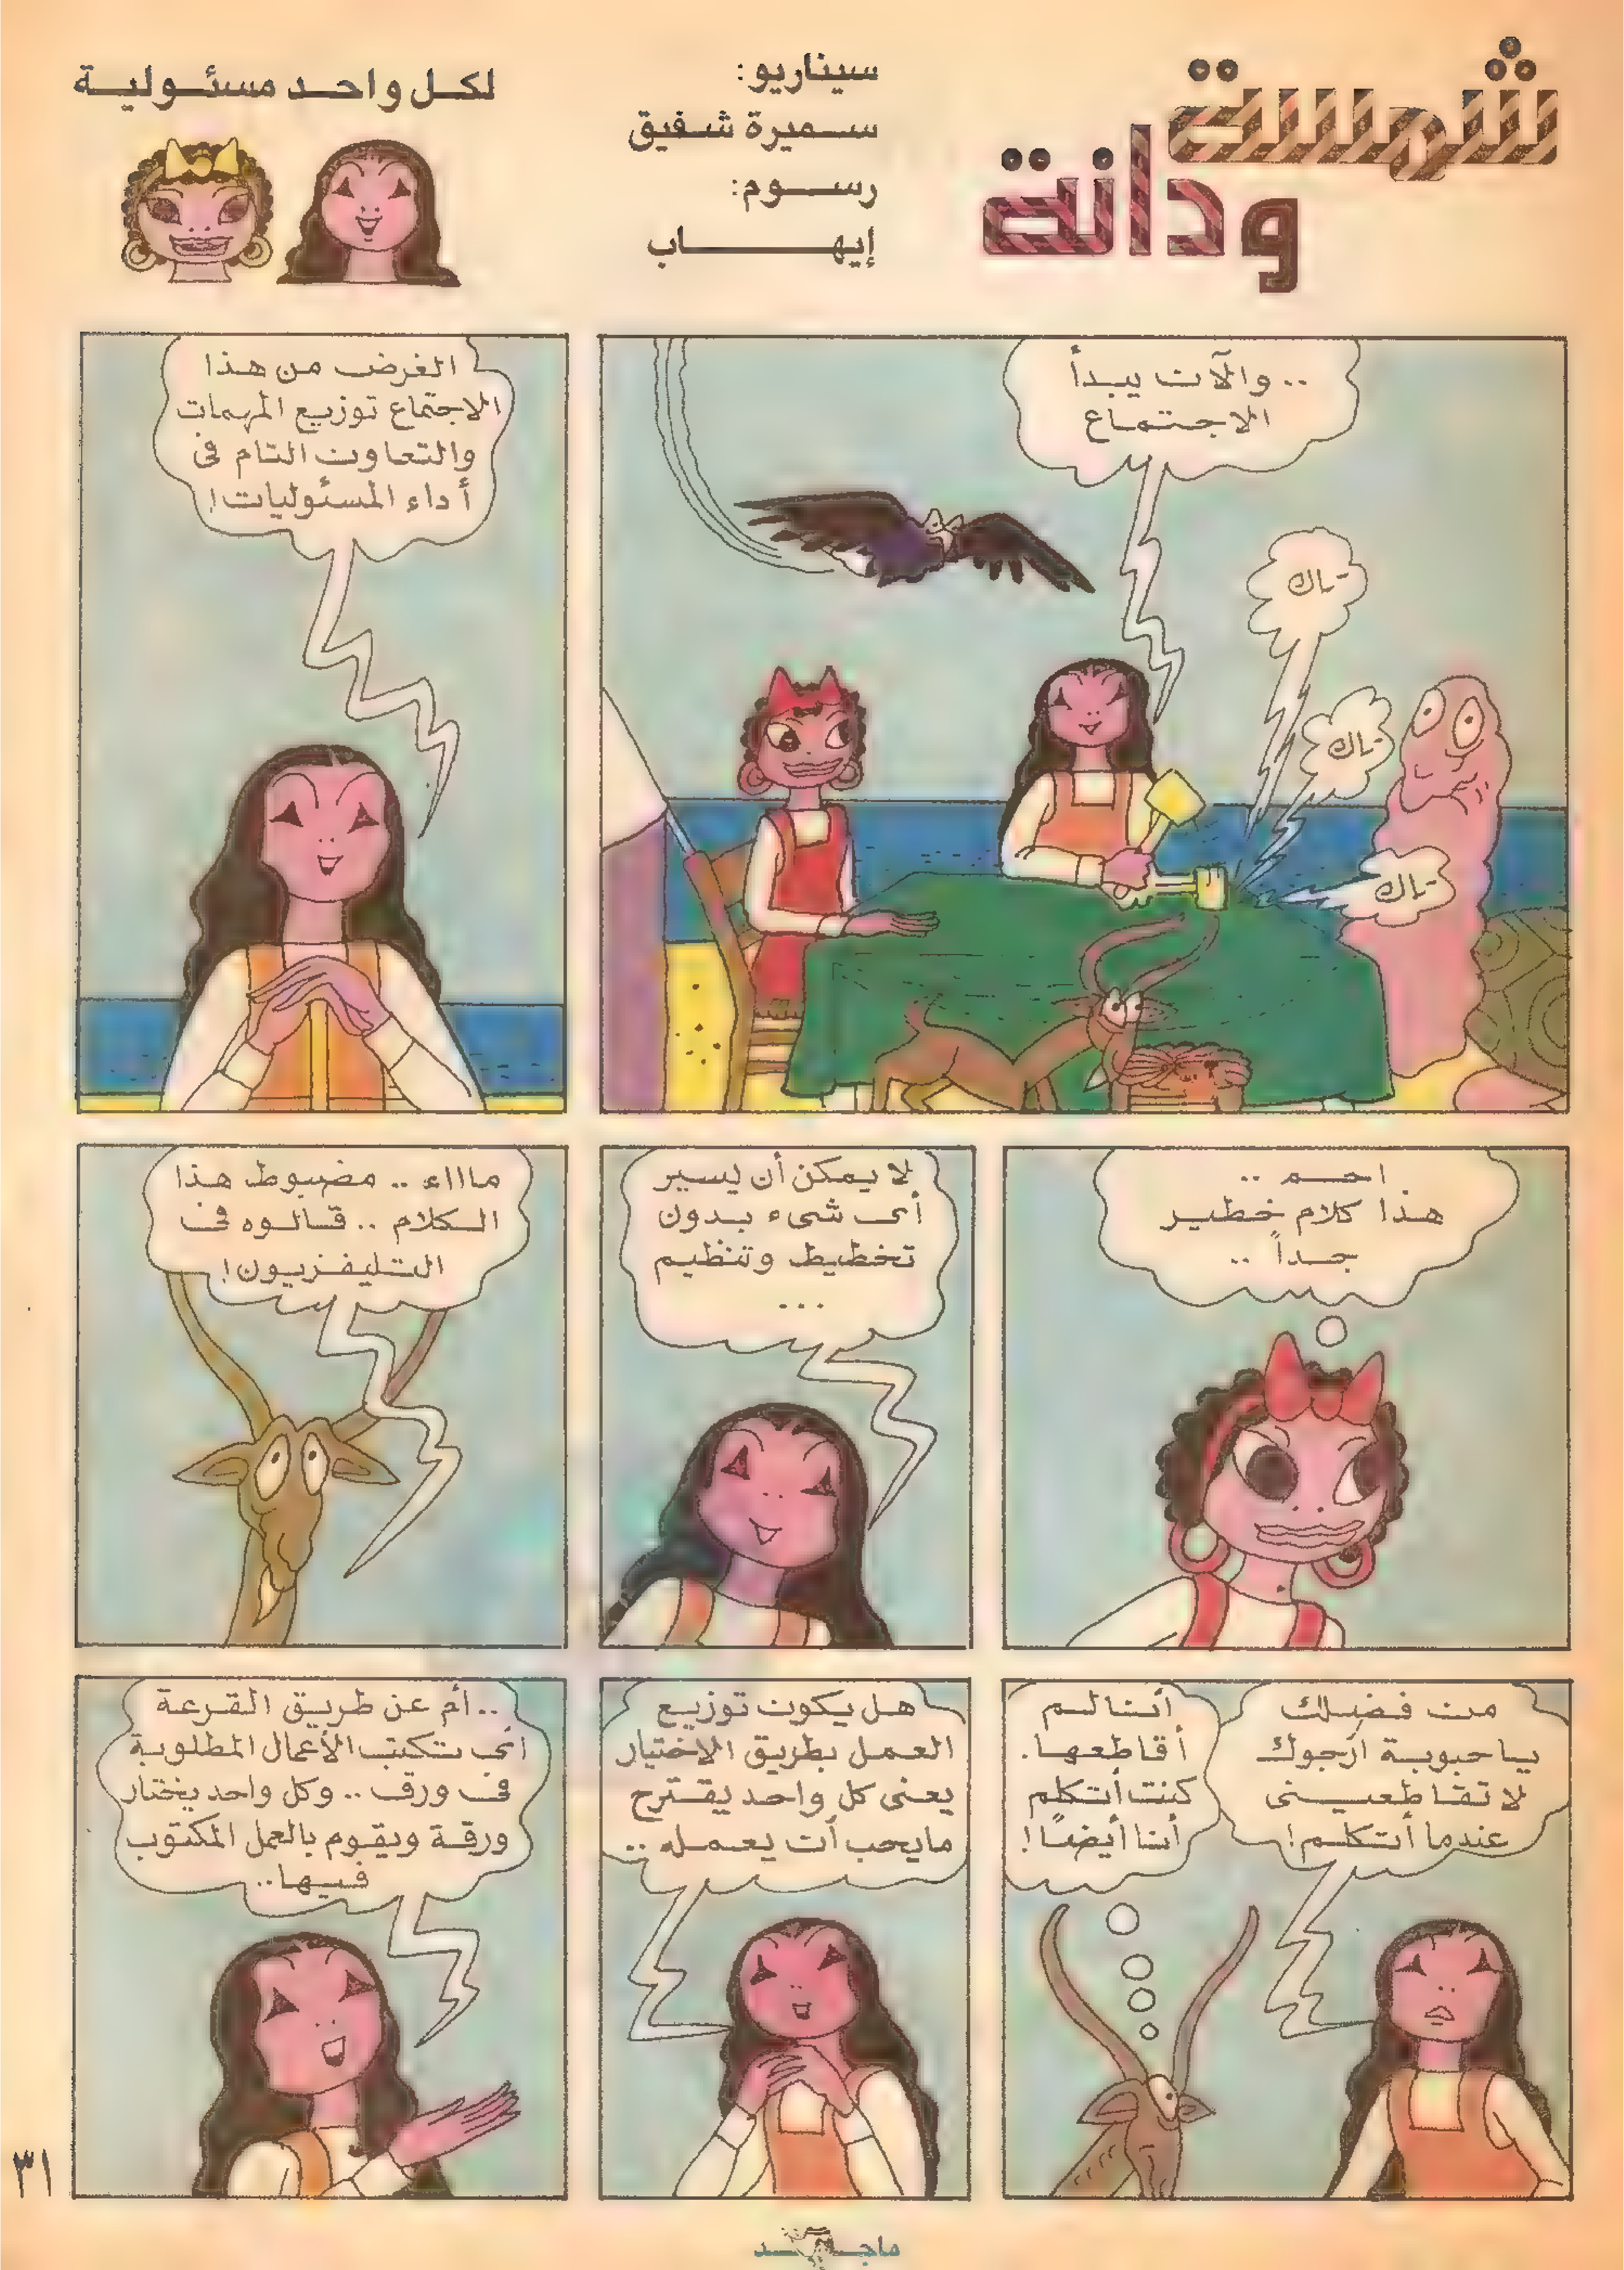 شمسة
ودانة
سيناريو:
سميرة شفيق
رسوم:
إيهاب
لكل واحد مسئولية
.. والآن يبدأ
الاجتماع
تاك
تاك
تاك
الغرض من هذا
الاجتماع توزيع المهمات
والتعاون التام فى
أداء المسئوليات!
احم ..
هذا كلام خطير
جداً ..
لا يمكن أن يسير
أى شىء بدون
تخطيط وتنظيم
...
ماااء .. مضبوط هذا
الكلام .. قالوه فى
التليفزيون!
من فضلك
يا حبوبة أرجوك
لا تقاطعينى
عندما أتكلم!
أنا لم
أقاطعها.
كنت أتكلم
أنا أيضًا!
هل يكون توزيع
العمل بطريق الاختيار
يعنى كل واحد يقترح
مايحب أن يعمله ..
..أم عن طريق القرعة
أى نكتب الأعمال المطلوبة
فى ورق .. وكل واحد يختار
ورقة ويقوم بالعمل المكتوب
فيها..
٣١
ماجد